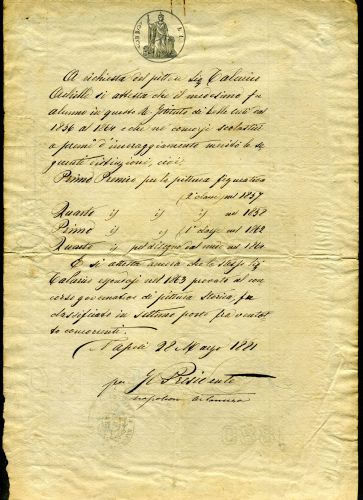 A richiesta del pittore Sig. Talarico
si attesta che il medesimo fu
alunno in questo R. Istituto di belle arti dal
1856 al 1864 e che ne' concorsi scolastici
a premi d'incoraggiamento meritò le se
guenti distinzioni, cioè:
Primo Premio per la pittura figurativa
(2a classe) nel 1857
Quarto id id id nel 1858
Primo id id (1a classe) nel 1862
Quarto id pel disegno dal nudo nel 1860
E si attesta ancora che lo stesso Sig
Talarico nel 1863 al con
corso governativo di pittura storica, fu
classificato in settimo posto fra ventot
to concorrenti.
Napoli 28 Maggio 1881
per Il Presidente